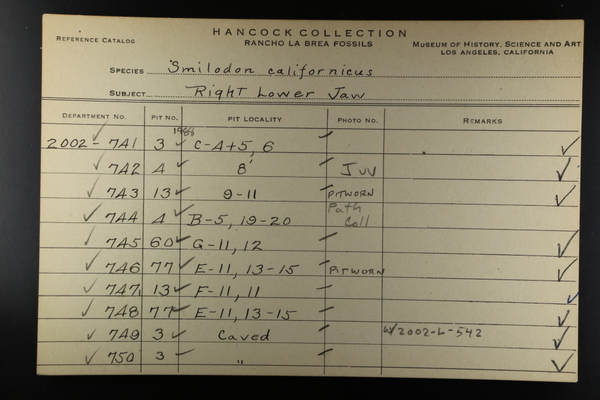 HANCOCK COLLECTION
REFERENCE CATALOG RANCHO LA BREA FOSSILS MUSEUM OF HISTORY, SCIENCE AND ART
LOS ANGELES, CALIFORNIA
SPECIES Smilodon californicus
SUBJECT Right Lower Jaw
DEPARTMENT NO. PIT NO. PIT LOCALITY PHOTO NO. REMARKS
1988
2002-741 3 C-4+5, 6
742 4 8' Juv
743 13 9-11 PITWORN
744 4 B-5, 19-20 Path Coll
745 60 G-11, 12
746 77 E-11, 13-15 PITWORN
747 13 F-11, 11
748 77 E-11, 13-15
749 3 Caved w/2002-L-542
750 3 "